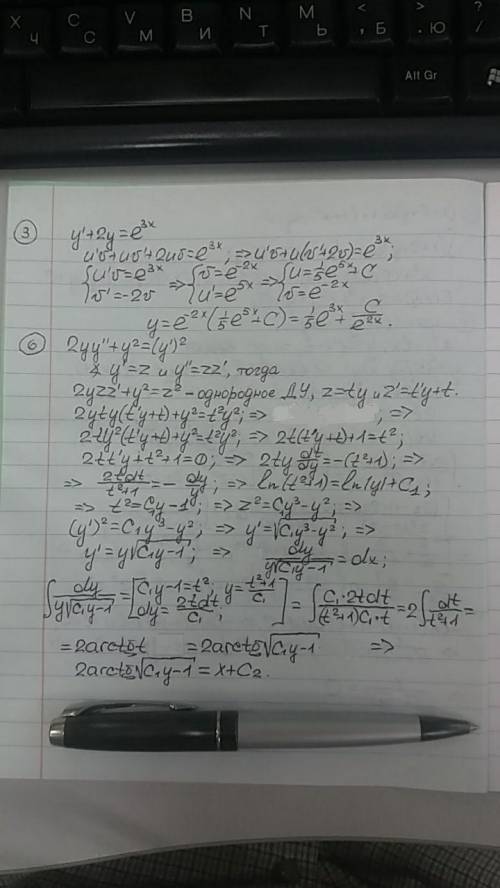 Х Ч
С С
V М
В И
N Т
М Ь
< , Б
> . Ю
? /
Alt Gr
③ y'+2y=e^{3x}
u'v+uv'+2uv=e^{3x}; ⇒u'v+u(v'+2v)=e^{3x};
{u'v=e^{3x} v'=-2v ⇒ {v=e^{-2x} u'=e^{5x} ⇒ {u=1/5 e^{5x}+C v=e^{-2x}
y=e^{-2x}(1/5 e^{5x}+C)=1/5 e^{3x}+C/e^{2x}.
⑥ 2yy''+y²=(y')²
∢ y'=z и y''=zz', тогда
2yzz'+y²=z² - однородное ДУ, z=ty и z'=t'y+t.
2yty(t'y+t)+y²=t²y²; ⇒ ; ⇒
2ty²(t'y+t)+y²=t²y²; ⇒ 2t(t'y+t)+1=t²;
2tt'y+t²+1=0; ⇒ 2ty dt/dy=-(t²+1); ⇒
⇒ 2tdt/t²+1=-dy/y; ⇒ ln(t²+1)=ln|y|+C₁;
⇒ t²=C₁y-1; ⇒ z²=C₁y³-y²; ⇒
(y')²=C₁y³-y²; ⇒ y'=√C₁y³-y²; ⇒
y'=y√C₁y-1; ⇒ dy/y√C₁y-1=dx;
∫dy/y√C₁y-1=[C₁y-1=t²; y=t²+1/C₁ dy=2tdt/C₁;]=∫C₁·2tdt/(t²+1)C₁·t=2∫dt/t²+1=
=2arctgt =2arctg√C₁y-1 ⇒
2arctg√C₁y-1=x+C₂.